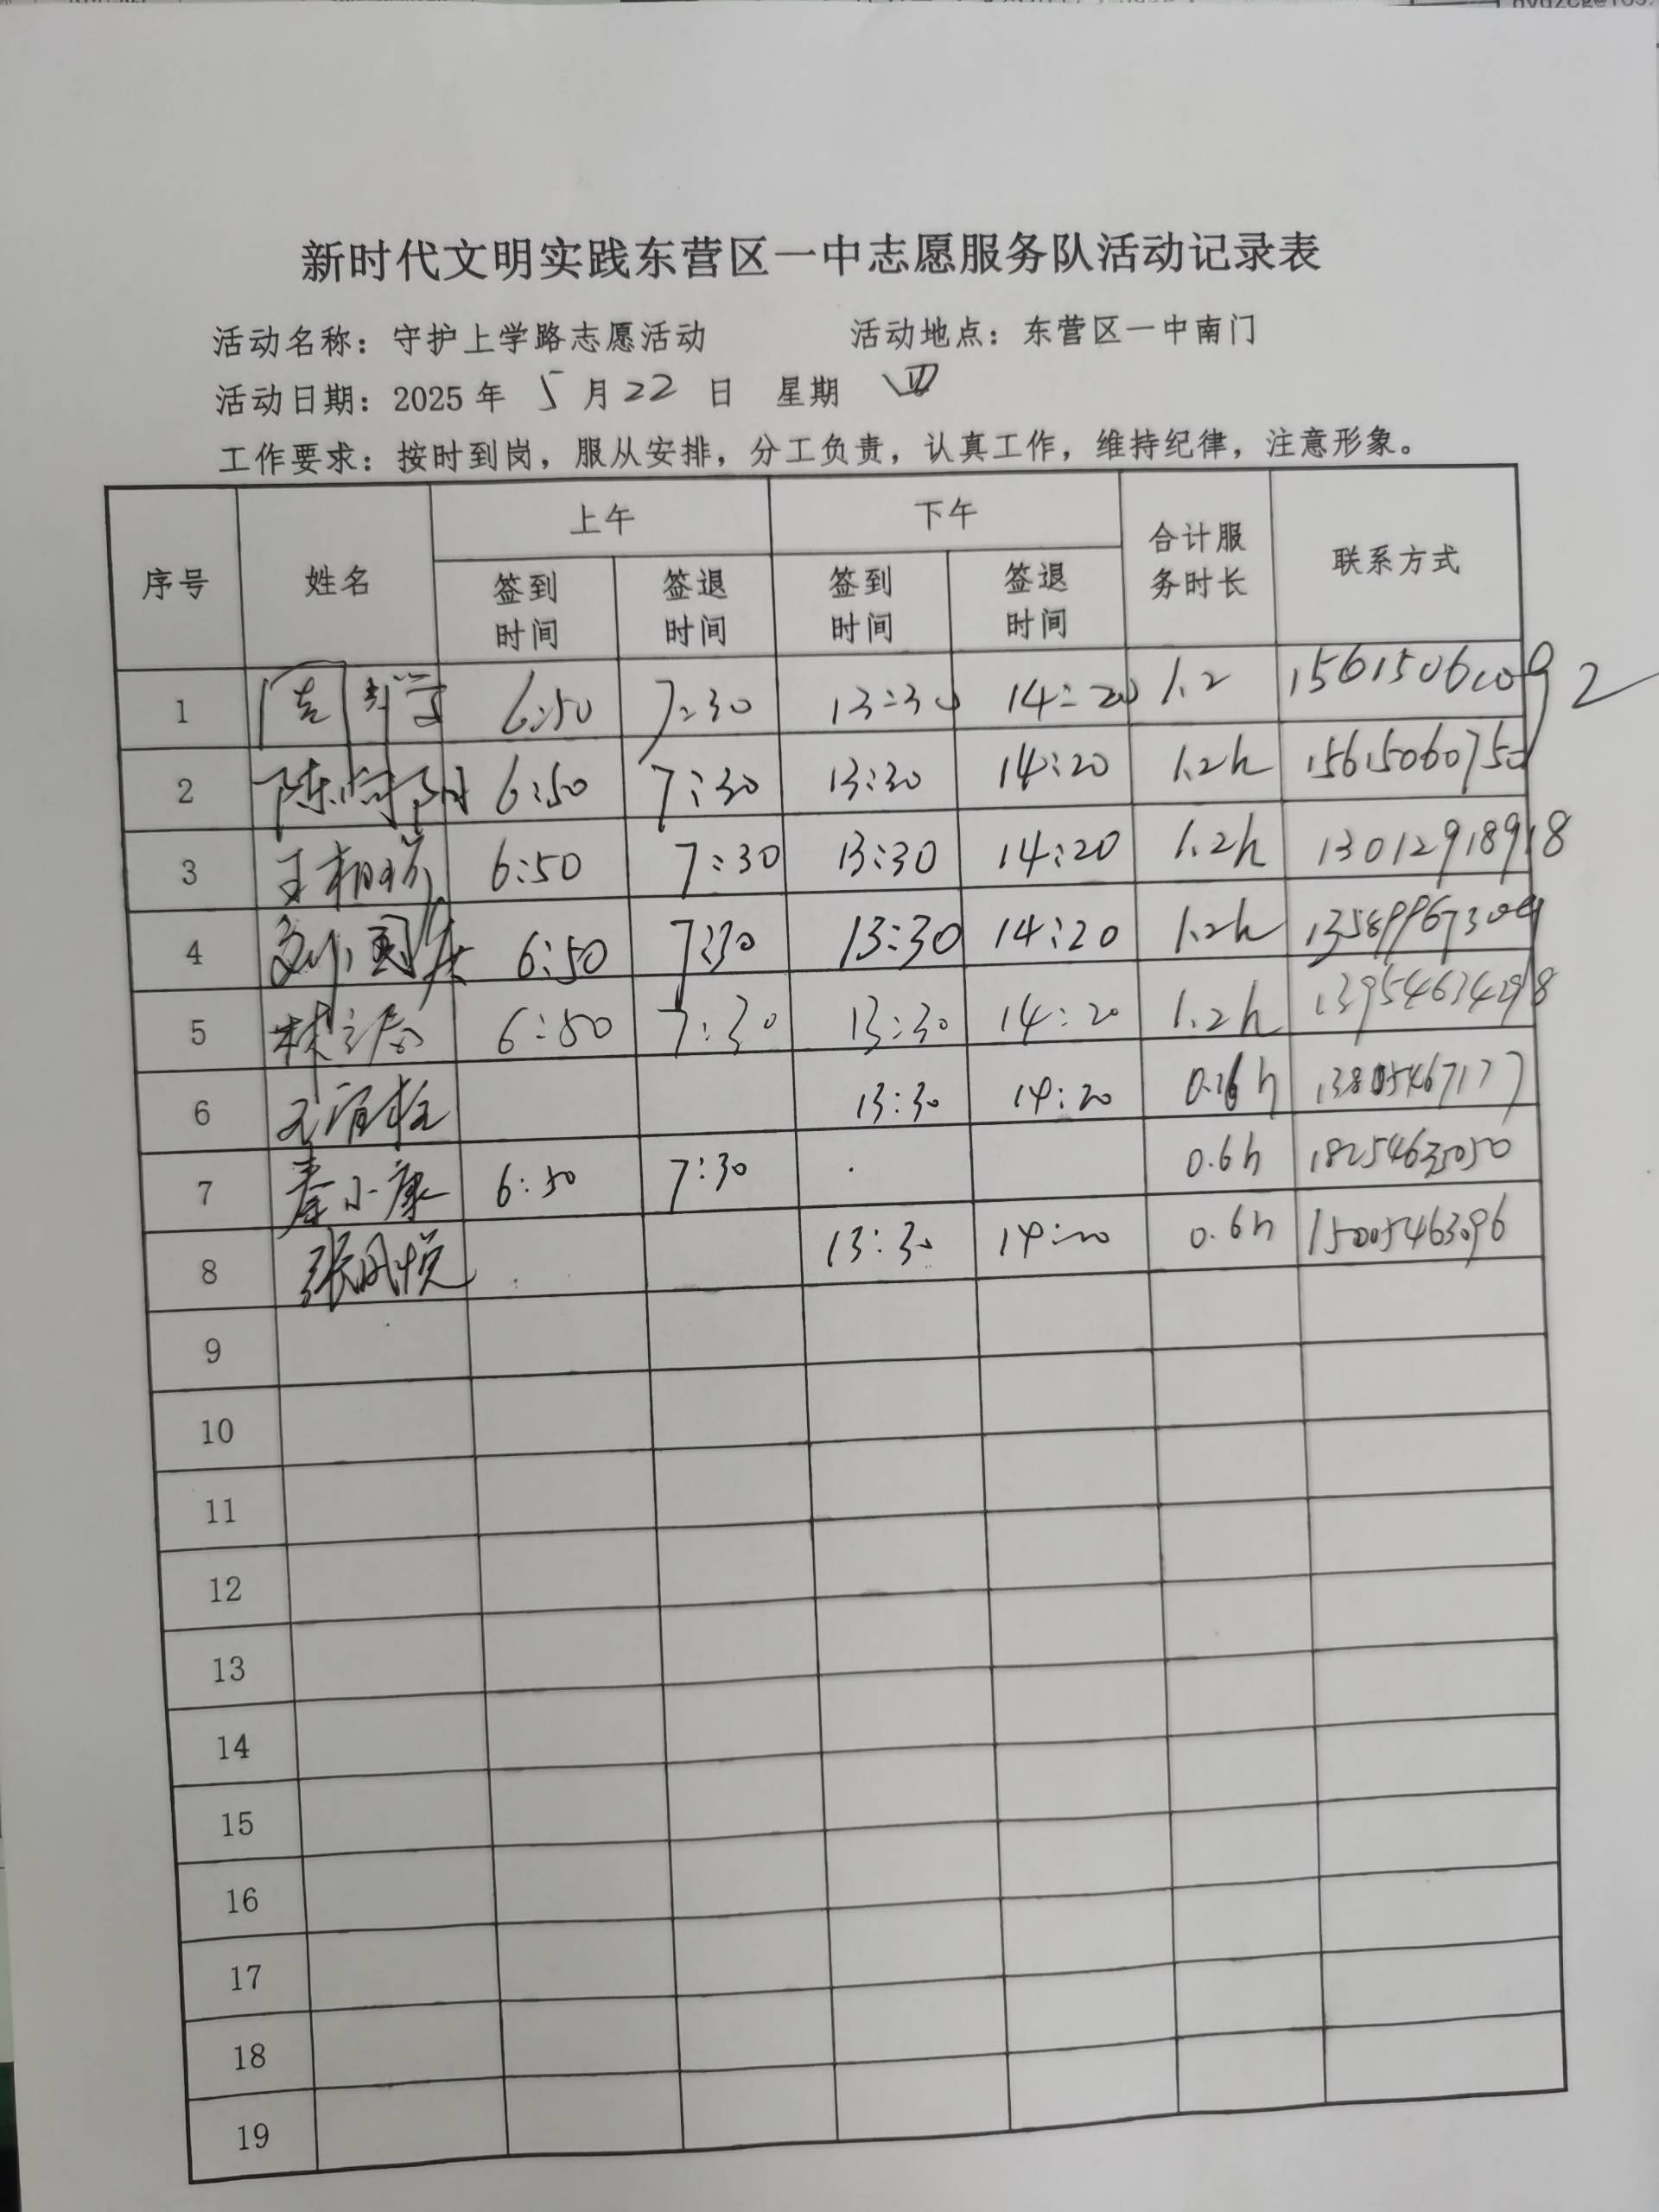 新时代文明实践东营区一中志愿服务队活动记录表
活动名称：守护上学路志愿活动 活动地点：东营区一中南门
活动日期：2025年 5月22 日 星期 四
工作要求：按时到岗，服从安排，分工负责，认真工作，维持纪律，注意形象。
序号 姓名 上午 下午 合计服务时长 联系方式
签到时间 签退时间 签到时间 签退时间
1 6:50 7:30 13:30 14:20 1.2
2 6:50 7:30 13:30 14:20 1.2h
3 6:50 7:30 13:30 14:20 1.2h 13012918918
4 6:50 7:30 13:30 14:20 1.2h
5 6:50 7:30 13:30 14:20 1.2h 13954634298
6 13:30 14:20
7 秦小康 6:50 7:30 0.6h 18254635050
8 张凤悦 13:30 14:20 0.6h 15005463096
9
10
11
12
13
14
15
16
17
18
19